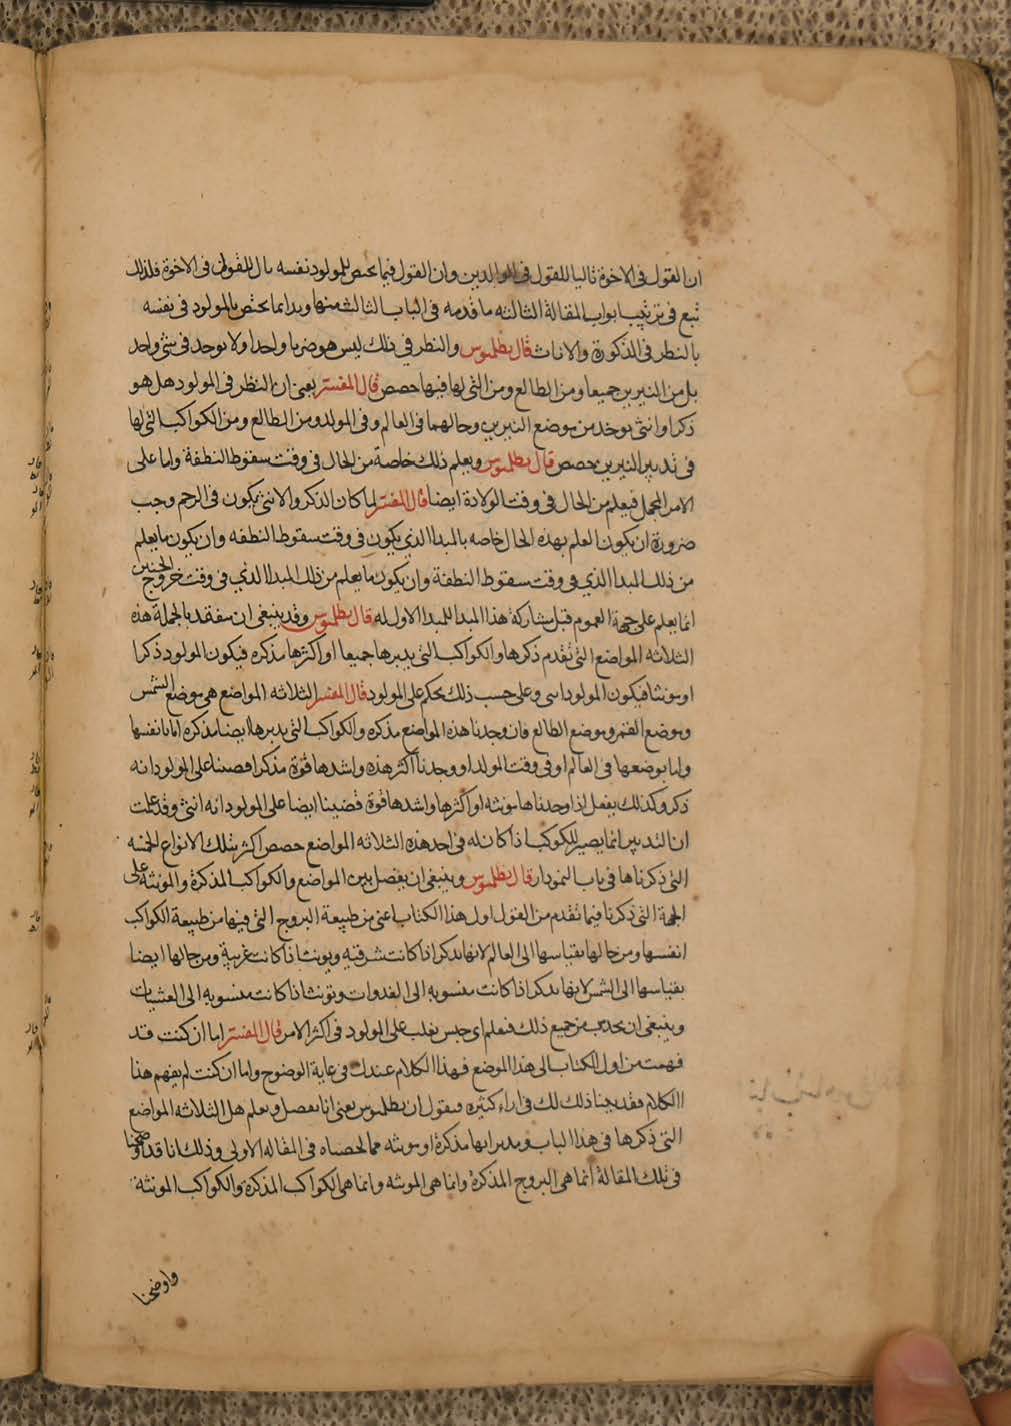 ان القول فى الاخوة تاليا للقول فى الوالدين وان القول فيما يخص للمولود نفسه تال للقول فى الاخوة فلذلك
تبع فى ترتيب ابواب المقالة الثالثه ما قدمه فى الباب الثالث منها وبدا بما يختص بالمولود فى نفسه
بالنظر فى الذكورة والاناث قال بطلميوس والنظر فى ذلك ليس هو ضربا واحدا ولا يوجد فى شئ واحد
بل من النيرين جميعا ومن الطالع ومن التى لها فيها حصص قال المفسر يعنى ان النظر فى المولود هل هو
ذكر او انثى يوخذ من موضع النيرين وحالهما فى العالم وفى المولد ومن الطالع ومن الكواكب التى لها
فى تدبير النيرين حصص قال بطلميوس ويعلم ذلك خاصة من الحال فى وقت سقوط النطفة واما على
الامر المجمل فيعلم من الحال فى وقت الولادة ايضا قال المفسر لما كان الذكر والانثى يكون فى الرحم وجب
ضرورة ان يكون العلم بهذه الحال خاصه بالمبدا الذى يكون فى وقت سقوط النطفه وان يكون ما يعلم
من ذلك المبدا الذى فى وقت سقوط النطفة وان يكون ما يعلم من ذلك المبدا الذى فى وقت خروج الجنين
انما يعلم على جهة العموم قبل مشاركة هذا المبدا للمبدا الاول له قال بطلميوس وقد ينبغى ان نتفقد بالجملة هذه
الثلاثه المواضع التى تقدم ذكرها والكواكب التى يدبرها جميعا او اكثرها مذكره فيكون المولود ذكرا
او مونثا فيكون المولود انثى وعلى حسب ذلك يحكم على المولود قال المفسر الثلاثه المواضع هى موضع الشمس
وموضع القمر وموضع الطالع فان وجدنا هذه المواضع مذكره والكواكب التى يدبرها ايضا مذكره اما بانفسها
واما بوضعها فى العالم او فى وقت المولد او وجدنا اكثر هذه واشدها قوة مذكرا قضينا على المولود انه
ذكر وكذلك يفعل اذا وجدناها مونثه او اكثرها واشدها قوة قضينا ايضا على المولود انه انثى وقد علمت
ان التدبير انما يصير للكوكب اذا كان له فى احد هذه الثلاثه المواضع حصص اكثر بتلك الانواع الخمسه
التى ذكرناها فى باب النمودار قال بطلميوس وينبغى ان يفصل بين المواضع والكواكب المذكرة والمونثه على
الجهة التى ذكرنا فيما تقدم من القول اول هذا الكتاب اعنى من طبيعة البروج التى فيها من طبيعة الكواكب
انفسها ومن حالها بقياسها الى العالم لانها تذكر اذا كانت شرقيه ويونث اذا كانت غربية ومن حالها ايضا
بقياسها الى الشمس لانها تذكر اذا كانت منسوبه الى الغدوات وتونث اذا كانت منسوبه الى العشيات
وينبغى ان نحدس من جميع ذلك فنعلم اى جنس يغلب على المولود فى اكثر الامر قال المفسر اما ان كنت قد
فهمت من اول الكتاب الى هذا الموضع فهذا الكلام عندك فى غاية الوضوح واما ان كنت لم يفهم هذا
الكلام فقد بينا ذلك لك فى اراء كثيره فنقول ان بطلميوس يعنى انا نفصل ونعلم هل الثلاثه المواضع
التى ذكرها فى هذا الباب ومدبراتها مذكرة او مونثه مما لخصناه فى المقاله الاولى وذلك انا قد اوضحنا
فى تلك المقالة انما هى البروج المذكرة وانما هى المونثه وانما هى الكواكب المذكرة والكواكب المونثه
واوضحنا